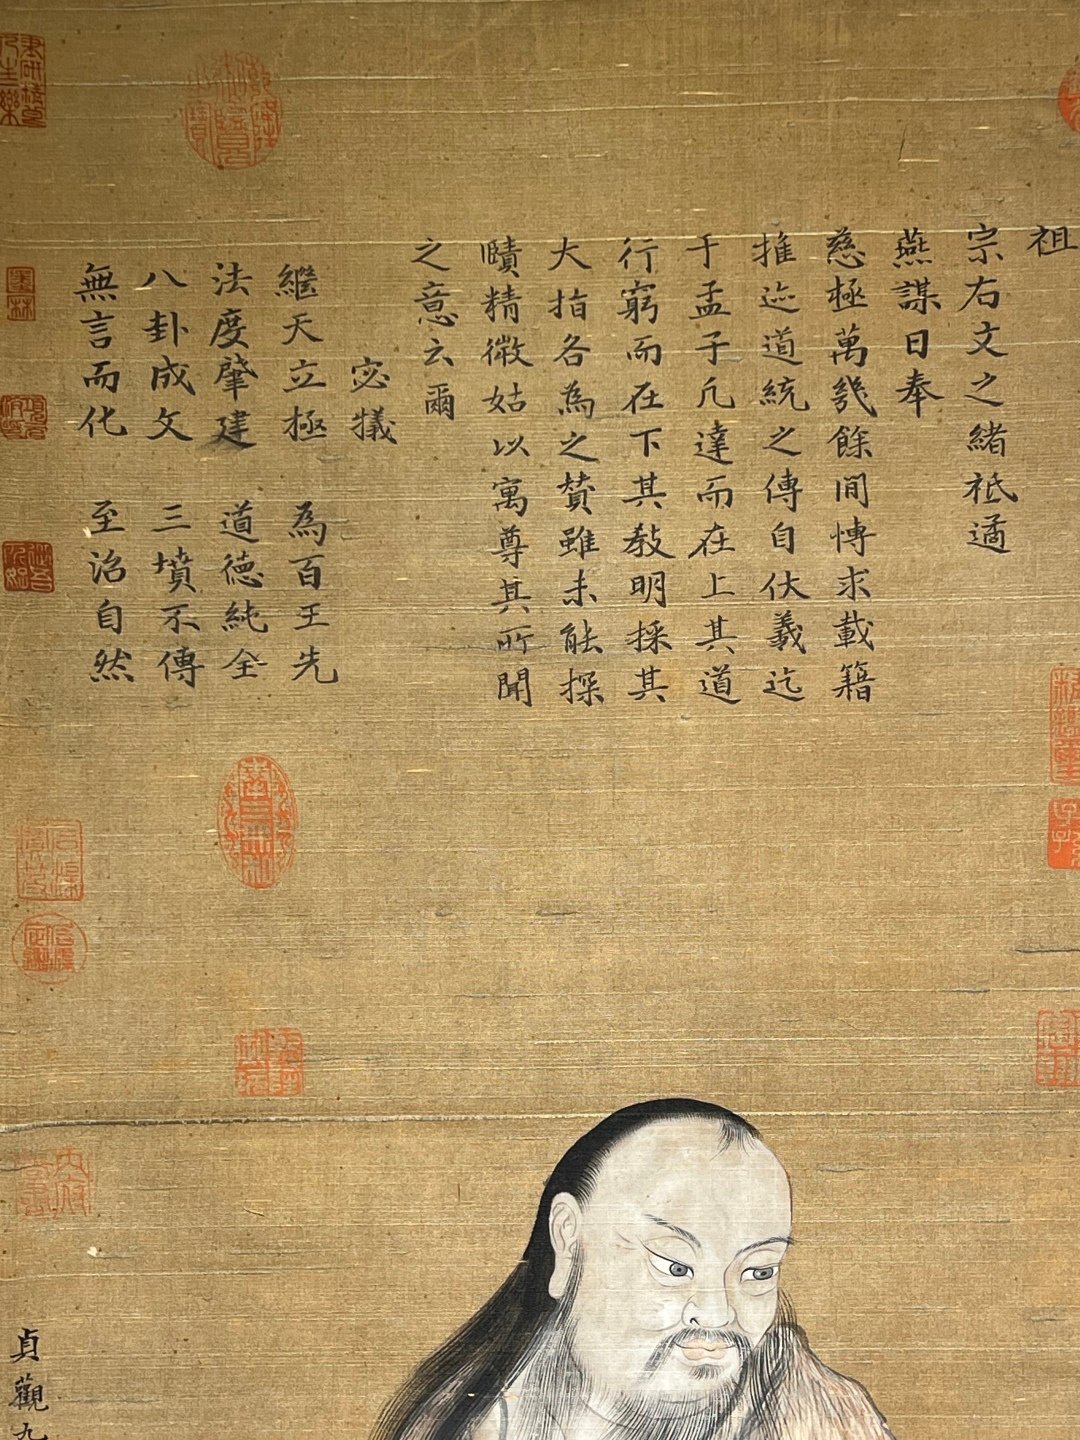 祖
宗右文之緒祗遹
燕謀日奉
慈極萬幾餘閒博求載籍
推迹道統之傳自伏羲迄
于孟子凡達而在上其道
行窮而在下其教明採其
大指各為之贊雖未能探
賾精微姑以寓尊其所聞
之意云爾
宓犧
繼天立極 為百王先
法度肇建 道德純全
八卦成文 三墳不傳
無言而化 至治自然
貞觀九
乾隆御覽之寶
墨林